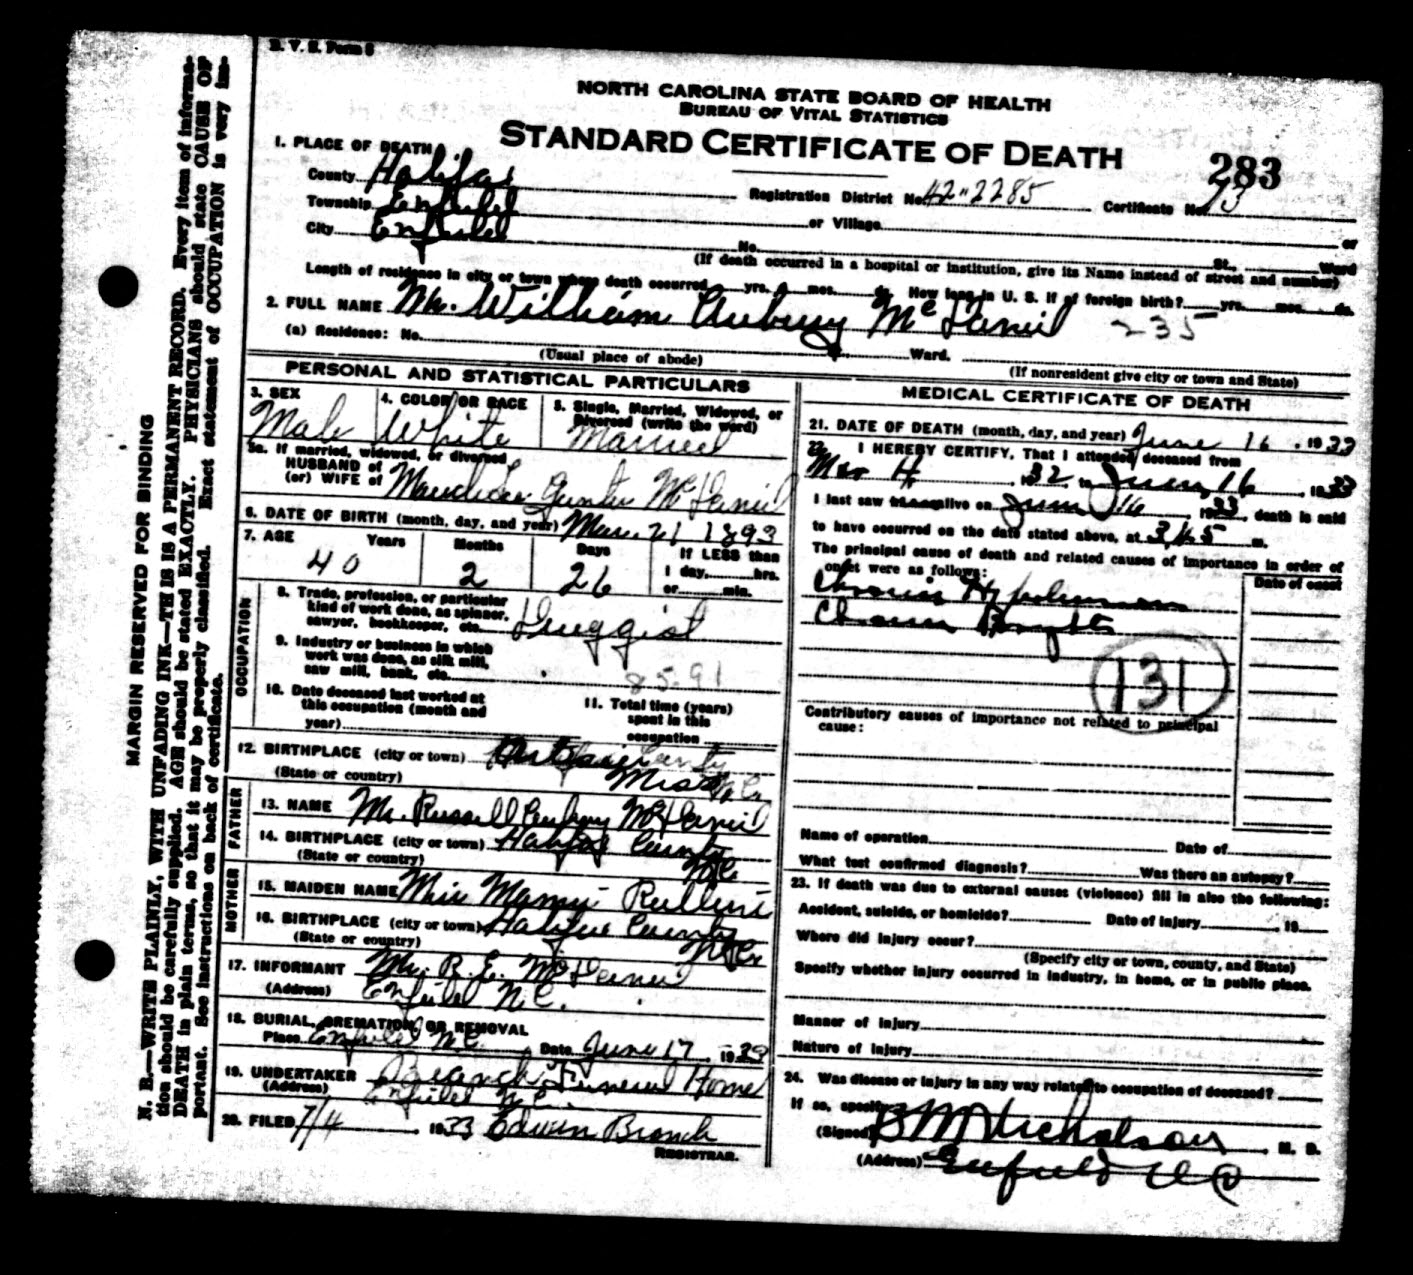 N. C. B. V. S. Form 8
NORTH CAROLINA STATE BOARD OF HEALTH
BUREAU OF VITAL STATISTICS
STANDARD CERTIFICATE OF DEATH
283
1. PLACE OF DEATH
County Halifax
Registration District No. 42-2285 Certificate No. 73
Township Enfield or Village or
City Enfield No. St., Ward
(If death occurred in a hospital or institution, give its Name instead of street and number)
Length of residence in city or town where death occurred yrs. mos. ds. How long in U. S. if of foreign birth? yrs. mos. ds.
2. FULL NAME Mr. William Aubrey McDaniel 235
(a) Residence: No. Ward.
(Usual place of abode) (If nonresident give city or town and State)
PERSONAL AND STATISTICAL PARTICULARS
3. SEX Male
4. COLOR OR RACE White
5. Single, Married, Widowed, or Divorced (write the word) Married
5a. If married, widowed, or divorced
HUSBAND of
(or) WIFE of Gunter McDaniel
6. DATE OF BIRTH (month, day, and year) Mar. 21 1893
7. AGE Years Months Days If LESS than
1 day, hrs.
or min.
40 2 26
OCCUPATION
8. Trade, profession, or particular
kind of work done, as spinner,
sawyer, bookkeeper, etc. Druggist
9. Industry or business in which
work was done, as silk mill,
saw mill, bank, etc. 85-91
10. Date deceased last worked at
this occupation (month and
year)
11. Total time (years)
spent in this
occupation
12. BIRTHPLACE (city or town) County
(State or country)
FATHER
13. NAME Mr. Russell McDaniel
14. BIRTHPLACE (city or town) Halifax County
(State or country) N.C.
MOTHER
15. MAIDEN NAME Miss Mamie
16. BIRTHPLACE (city or town) Halifax County
(State or country) N.C.
17. INFORMANT Mr. R. E. McDaniel
(Address) Enfield N.C.
18. BURIAL, CREMATION, OR REMOVAL
Place Enfield N.C. Date June 17, 1933
19. UNDERTAKER Branch Funeral Home
(Address) Enfield N.C.
20. FILED 7/4, 1933 Edwin Branch
REGISTRAR.
MEDICAL CERTIFICATE OF DEATH
21. DATE OF DEATH (month, day, and year) June 16, 1933
22. I HEREBY CERTIFY, That I attended deceased from
, 1932 to June 16, 1933
I last saw alive on June 16, 1933, death is said
to have occurred on the date stated above, at 3.45 m.
The principal cause of death and related causes of importance in order of
onset were as follows:
Date of onset
Chronic
Chronic Brights
131
Contributory causes of importance not related to principal
cause:
Name of operation Date of
What test confirmed diagnosis? Was there an autopsy?
23. If death was due to external causes (violence) fill in also the following:
Accident, suicide, or homicide? Date of injury , 19
Where did injury occur?
(Specify city or town, county, and State)
Specify whether injury occurred in industry, in home, or in public place.
Manner of injury
Nature of injury
24. Was disease or injury in any way related to occupation of deceased?
If so, specify
(Signed) B M Nicholson, M. D.
(Address) Enfield N C
MARGIN RESERVED FOR BINDING
N. B.—WRITE PLAINLY, WITH UNFADING INK—THIS IS A PERMANENT RECORD. Every item of informa-
tion should be carefully supplied. AGE should be stated EXACTLY. PHYSICIANS should state CAUSE OF
DEATH in plain terms, so that it may be properly classified. Exact statement of OCCUPATION is very im-
portant. See instructions on back of certificate.